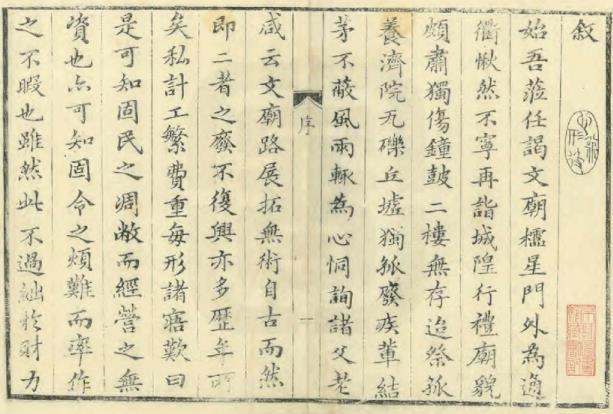 敘
始吾蒞任謁文廟櫺星門外為通
衢愀然不寧再詣城隍行禮廟貌
頗肅獨傷鐘鼓二樓無存迨祭孤
養濟院瓦礫丘墟獨孤癈疾葦結
茅不蔽風雨輒為心恫詢諸父老
序
一
咸云文廟路展拓無術自古而然
即二者之廢不復興亦多歷年所
矣私計工繁費重每形諸寤歎曰
是可知固民之凋敝而經營之無
資也亦可知固令之煩難而率作
之不暇也雖然此不過絀於財力